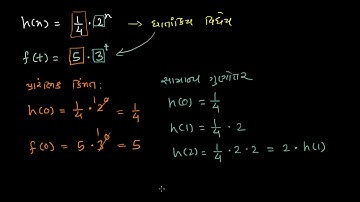 h(n) = 1/4 · 2ⁿ → ઘાતાંકીય વિધેય
f(t) = 5 · 3ᵗ
પ્રારંભિક કિંમત:
h(0) = 1/4 · 2⁰ 1 = 1/4
f(0) = 5 · 3⁰ 1 = 5
સામાન્ય ગુણોત્તર
h(0) = 1/4
h(1) = 1/4 · 2
h(2) = 1/4 · 2 · 2 = 2 · h(1)